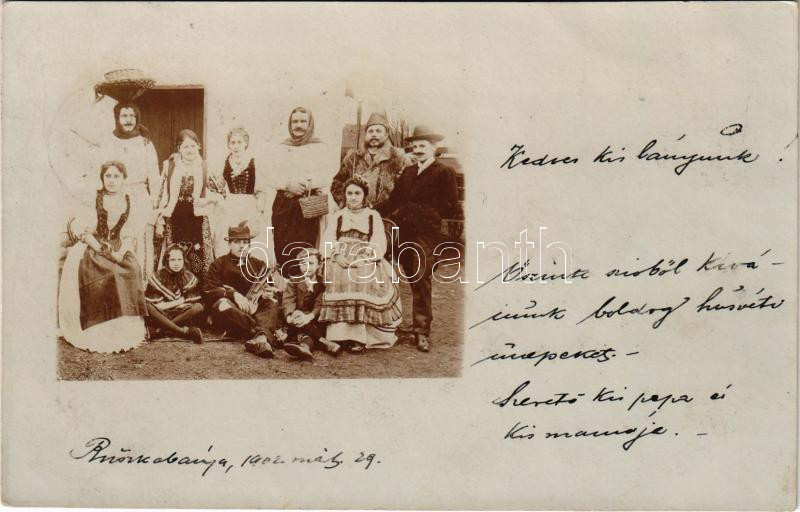 Kedves kis lányunk!
Őszinte szivből kivá-
nunk boldog húsvéti
ünnepeket.-
Szerető kis papa és
kis mamája.-
Ruszkabánya, 1902. márt. 29.
darabanth.com